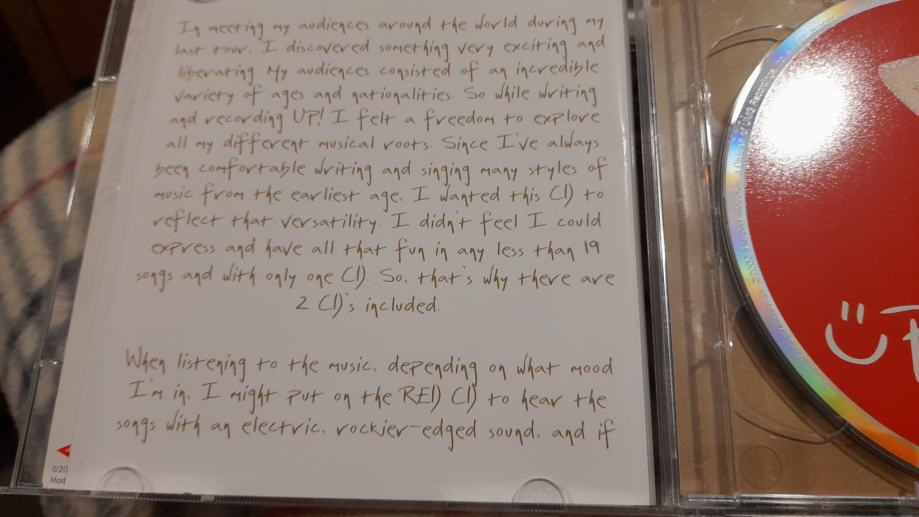 In meeting my audiences around the world during my
last tour, I discovered something very exciting and
liberating. My audiences consisted of an incredible
variety of ages and nationalities. So while writing
and recording UP! I felt a freedom to explore
all my different musical roots. Since I've always
been comfortable writing and singing many styles of
music from the earliest age, I wanted this CD to
reflect that versatility. I didn't feel I could
express and have all that fun in any less than 19
songs and with only one CD. So, that's why there are
2 CD's included.
When listening to the music, depending on what mood
I'm in, I might put on the RED CD to hear the
songs with an electric, rockier-edged sound, and if
©20
Mad